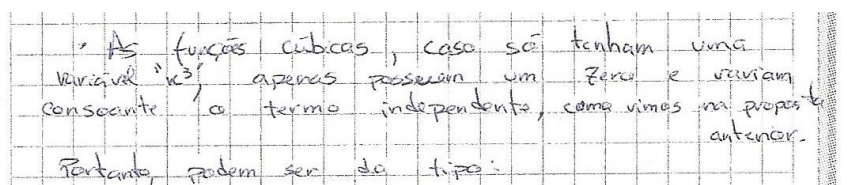 · As funções cúbicas, caso só tenham uma
variável "x³", apenas possuem um zero e variam
consoante o termo independente, como vimos na proposta
anterior.
Portanto, podem ser do tipo: